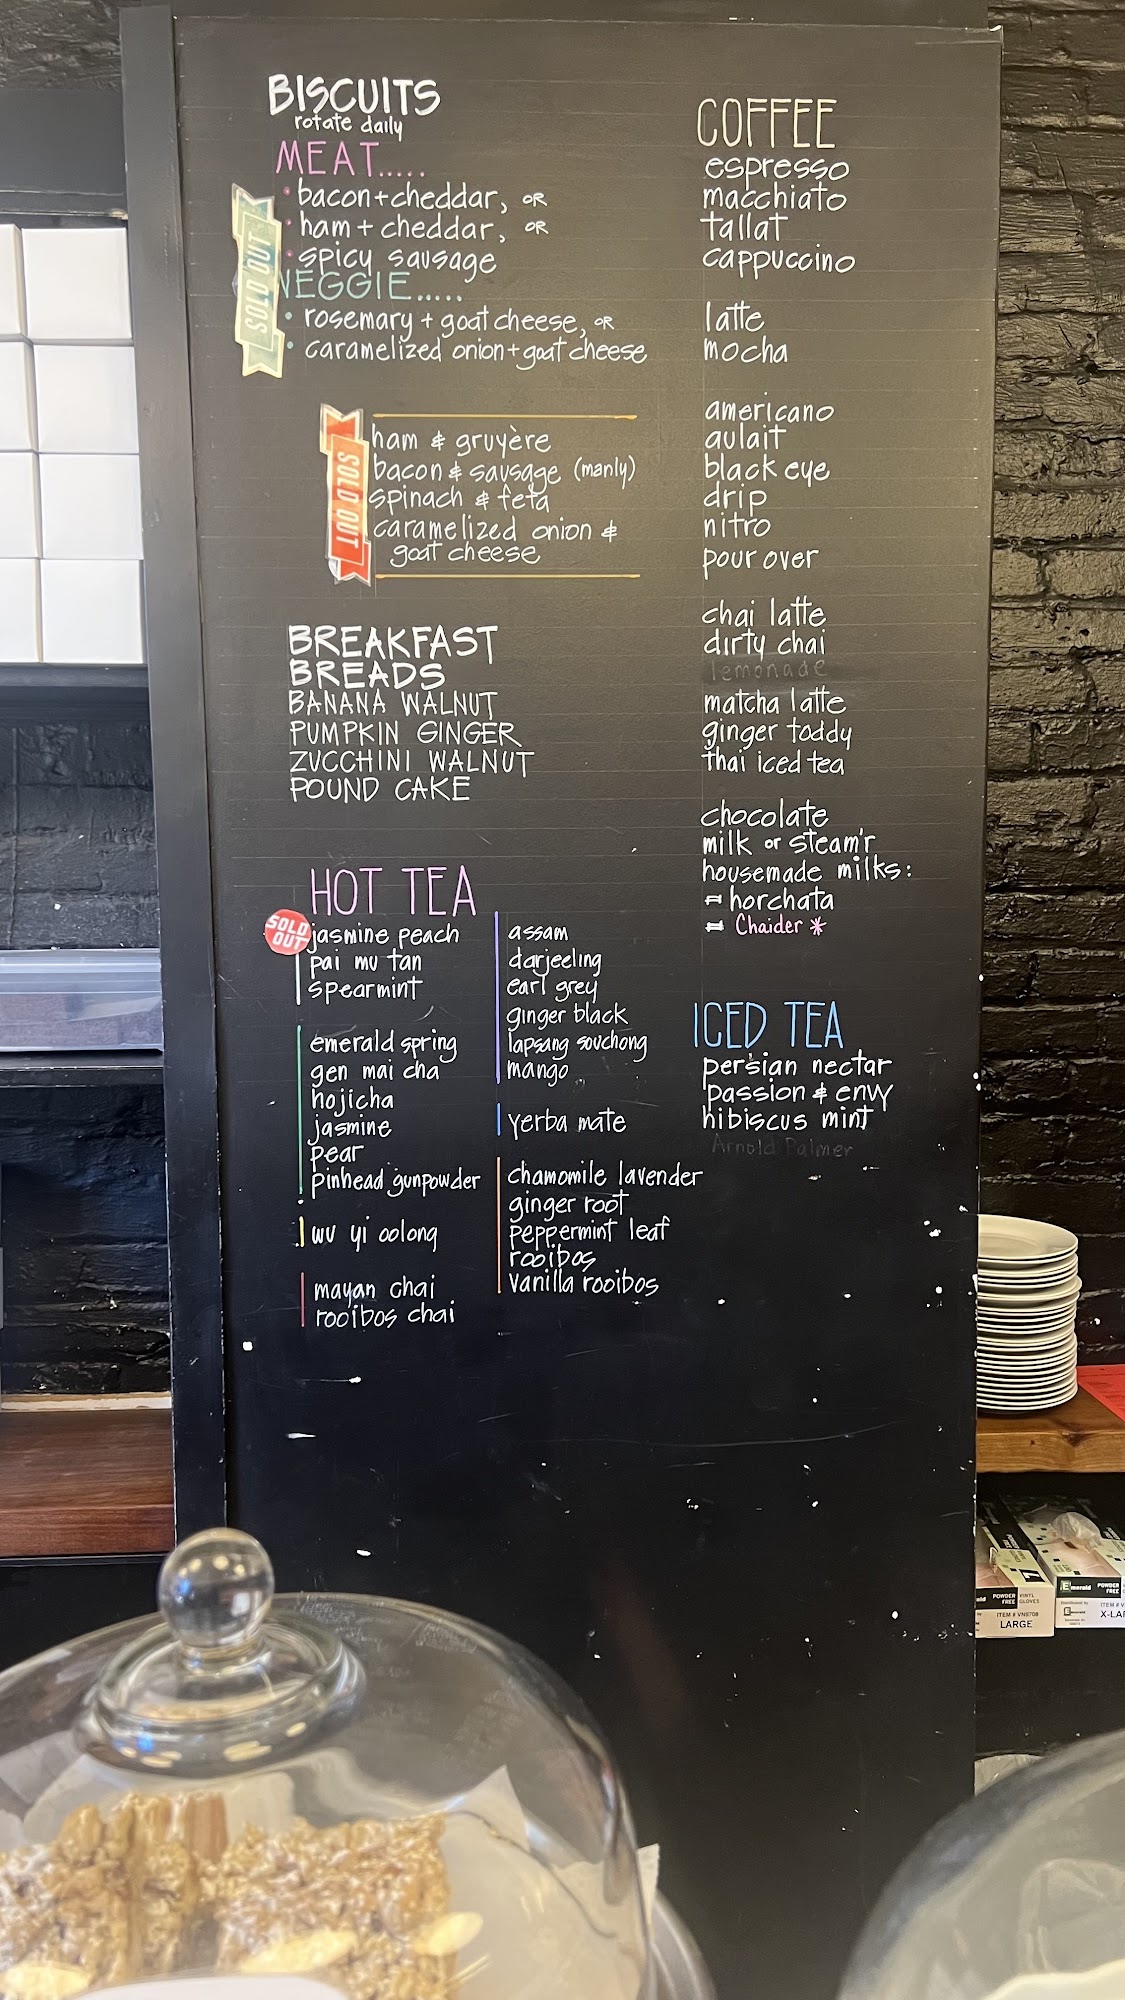 BISCUITS
rotate daily
MEAT.....
• bacon+cheddar, OR
• ham + cheddar, OR
• spicy sausage
VEGGIE.....
• rosemary + goat cheese, OR
• caramelized onion+goat cheese
SOLD OUT
SOLD OUT
ham & gruyère
bacon & sausage (manly)
spinach & feta
caramelized onion &
goat cheese
BREAKFAST
BREADS
BANANA WALNUT
PUMPKIN GINGER
ZUCCHINI WALNUT
POUND CAKE
HOT TEA
SOLD
OUT
jasmine peach
pai mu tan
spearmint
emerald spring
gen mai cha
hojicha
jasmine
pear
pinhead gunpowder
wu yi oolong
mayan chai
rooibos chai
assam
darjeeling
earl grey
ginger black
lapsang souchong
mango
yerba mate
chamomile lavender
ginger root
peppermint leaf
rooibos
vanilla rooibos
COFFEE
espresso
macchiato
tallat
cappuccino
latte
mocha
americano
aulait
black eye
drip
nitro
pour over
chai latte
dirty chai
lemonade
matcha latte
ginger toddy
thai iced tea
chocolate
milk or steam'r
housemade milks:
= horchata
= Chaider *
ICED TEA
persian nectar
passion & envy
hibiscus mint
Arnold Palmer
Emerald
POWDER
FREE
VINYL
GLOVES
ITEM # VNS708
LARGE
Emerald
POWDER
FREE